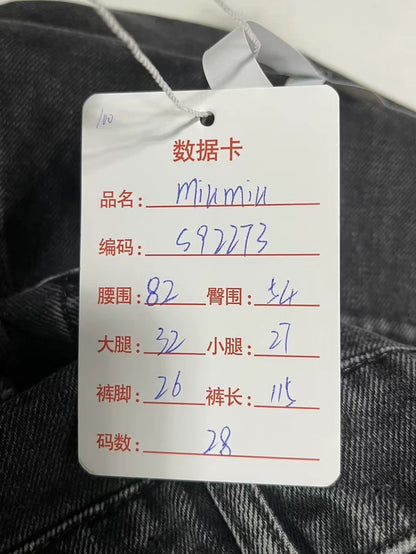 100
数据卡
品名: miumiu
编码: S92273
腰围: 82 臀围: 54
大腿: 32 小腿: 27
裤脚: 26 裤长: 115
码数: 28